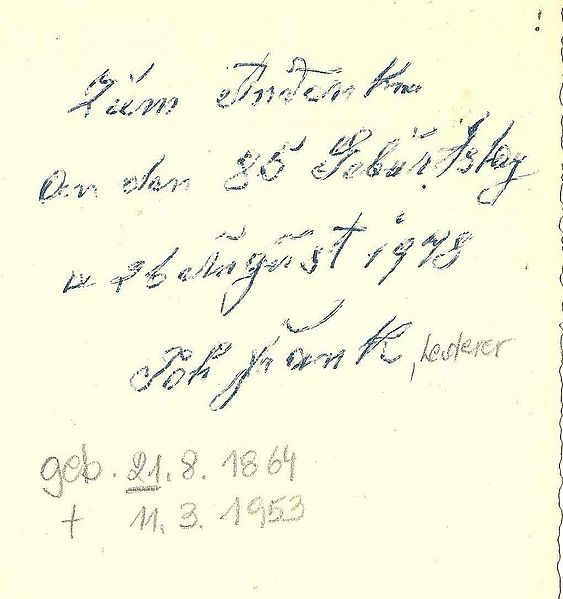 Zum Andenken
an den 85 Geburtstag
26 August 1948
Joh Frank, Lederer
geb. 21.8.1864
† 11.3.1953